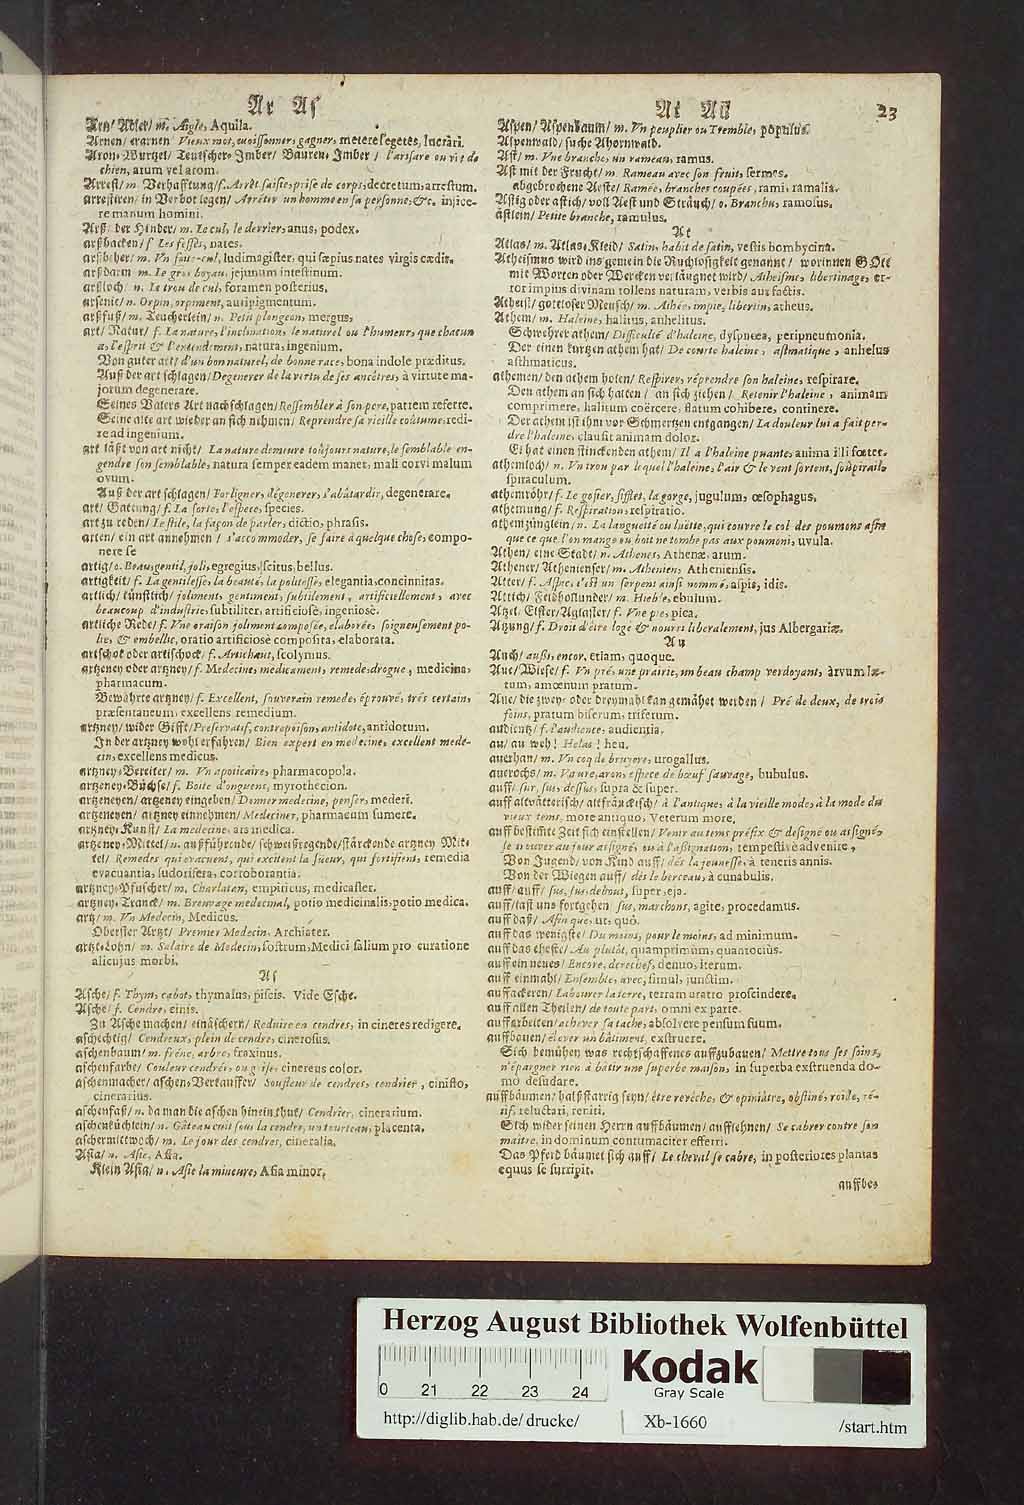 Ar As
Arn/ Adler/ m. Aigle, Aquila.
Arnen/ erarnen Vieux mot, moissonner, gagner, metere segetes, lucrari.
Aron-Wurtzel/ Teutscher-Imber/ Bauren-Imber/ l'arisare ou vit de
chien, arum vel arom.
Arrest/ m. Verhafftung/ f. Arrêt saisie, prise de corps, decretum, arrestum.
arrestiren/ in Verbot legen/ Arrêter un homme en sa personne, &c. injice-
re manum homini.
Arß/ der Hinder/ m. Le cul, le derrier, anus, podex.
arßbacken/ f. Les fesses, nates.
arßbeher/ m. Vn foue-cul, ludimagister, qui sæpius nates virgis cædit.
arßdarm m. Le gros boyau, jejunum intestinum.
arßloch/ n. Le trou de cul, foramen posterius.
arsenic/ n. Orpin, orpiment, auripigmentum.
arßfuß/ m. Teucherlein/ n. Petit plongeon, mergus.
art/ Natur/ f. La nature, l'inclination, le naturel ou l'humeur, que chacun
a, l'esprit & l'entendement, natura, ingenium.
Von guter art/ d'un bon naturel, de bonne race, bona indole præditus.
Auß der art schlagen/ Degenerer de la vertu de ses ancêtres, à virtute ma-
jorum degenerare.
Seines Vaters Art nachschlagen/ Ressembler à son pere, patrem referre.
Seine alte art wieder an sich nehmen/ Reprendre sa vieille coûtume, redi-
re ad ingenium.
art läßt von art nicht/ La nature demeure toûjours nature, le semblable en-
gendre son semblable, natura semper eadem manet, mali corvi malum
ovum.
Auß der art schlagen/ Forligner, dégenerer, s'abâtardir, degenerare.
art/ Gattung/ f. La sorte, l'espece, species.
art zu reden/ Le stile, la façon de parler, dictio, phrasis.
arten/ ein art annehmen/ s'accommoder, se faire à quelque chose, compo-
nere se
artig/ o. Beau, gentil, joli, egregius, scitus, bellus.
artigkeit/ f. La gentilesse, la beauté, la politesse, elegantia, concinnitas.
artlich/ künstlich/ joliment, gentiment, subtilement, artificiellement, avec
beaucoup d'industrie, subtiliter, artificiose, ingeniose.
artliche Rede/ f. Vne oraison joliment composée, elaborée, soigneusement po-
lie, & embellie, oratio artificiose composita, elaborata.
artschok oder artischock/ f. Artichaut, scolymus.
artzeney oder artzney/ f. Medecine, medicament, remede, drogue, medicina,
pharmacum.
Bewährte artzney/ f. Excellent, souverain remede, éprouvé, trés certain,
præsentaneum, excellens remedium.
artzney/ wider Gifft/ Preservatif, contrepoison, antidote, antidotum.
In der artzney wohl erfahren/ Bien expert en medecine, excellent mede-
cin, excellens medicus.
artzney-Bereiter/ m. Vn apoticaire, pharmacopola.
artzeney-Büchse/ f. Boite d'onguent, myrothecion.
artzeneyen/ artzeney eingeben/ Donner medecine, penser, mederi.
artzeneyen/ artzney einnehmen/ Medeciner, pharmacum sumere.
artzney-Kunst/ La medecine, ars medica.
artzeney-Mittel/ n. außführende/ schweißtreibende/ stärckende artzney Mit-
tel/ Remedes qui evacuent, qui excitent la sueur, qui fortifient, remedia
evacuantia, sudorifera, corroborantia.
artzney-Pfuscher/ m. Charlatan, empiricus, medicaster.
artzney-Tranck/ m. Breuvage medecinal, potio medicinalis, potio medica.
artz/ m. Vn Medecin, Medicus.
Oberster Artzt/ Premier Medecin, Archiater.
artzt-Lohn/ m. Salaire de Medecin, sostrum, Medici salium pro curatione
alicujus morbi.
As
Asche/ f. Thym, cabot, thymalus, piscis. Vide Esche.
Asche/ f. Cendre, cinis.
Zu Asche machen/ einäschern/ Reduire en cendres, in cineres redigere.
aschechtig/ Cendreux, plein de cendre, cinerosus.
aschenbaum/ m. frêne, arbre, fraxinus.
aschenfarbe/ Couleur cendrée, ou grise, cinereus color.
aschenmacher/ aschen-Verkauffer/ Soufleur de cendres, cendrier, ciniflo,
cinerarius.
aschenfaß/ n. da man die aschen hinein thut/ Cendrier, cinerarium.
aschenküchlein/ n. Gâteau cuit sous la cendre, un tourteau, placenta.
aschermittwoch/ m. Le jour des cendres, cineralia.
Asia/ n. Asie, Asia.
Klein Asia/ n. Asie la mineure, Asia minor.
At Au 23
Aspen/ Aspenbaum/ m. Vn peuplier ou Tremble, populus.
Aspenwald/ suche Ahornwald.
Ast/ m. Vne branche, un rameau, ramus.
Ast mit der Frucht/ m. Rameau avec son fruit, termes.
abgebrochene Aeste/ Ramée, branches coupées, rami, ramalia.
Astig oder astich/ voll Aest und Sträuch/ o. Branchu, ramosus.
ästlein/ Petite branche, ramulus.
At
Atlas/ m. Atlas-Kleid/ Satin, habit de satin, vestis bombycina.
Atheismus wird ins gemein die Ruchlosigkeit genannt/ worinnen GOtt
mit Worten oder Wercken verläugnet wird/ Atheisme, libertinage, er-
ror impius divinam tollens naturam, verbis aut factis.
Atheist/ gottloser Mensch/ m. Athée, impie, libertin, atheus.
Athem/ m. Haleine, halitus, anhelitus.
Schwehrer athem/ Difficulté d'haleine, dyspnœa, peripneumonia.
Der einen kurtzen athem hat/ De courte haleine, astmatique, anhelus
asthmaticus.
athemen/ den athem holen/ Respirer, réprendre son haleine, respirare.
Den athem an sich halten/ an sich ziehen/ Retenir l'haleine, animam
comprimere, halitum coërcere, flatum cohibere, continere.
Der athem ist ihm vor Schmertzen entgangen/ La douleur lui a fait per-
dre l'haleine, clausit animam dolor.
Er hat einen stinckenden athem/ Il a l'haleine puante, anima illi fœtet.
athemloch/ n. Vn trou par lequel l'haleine, l'air & le vent sortent, soûpirail,
spiraculum.
athemröhr/ f. Le gosier, sifflet, la gorge, jugulum, œsophagus.
athemung/ f. Respiration, respiratio.
athemzünglein/ n. La languette ou luette, qui couvre le col des poumons afin
que ce que l'on mange ou boit ne tombe pas aux poumons, uvula.
Athen/ eine Stadt/ n. Athenes, Athenæ, arum.
Athener/ Athenienser/ m. Athenien, Atheniensis.
Atter/ f. Aspic, c'est un serpent ainsi nommé, aspis, idis.
Attich/ Feldhollunder/ m. Hieble, ebulum.
Atzel/ Elster/ Aglaster/ f. Vne pie, pica.
Atzung/ f. Droit d'être logé & nourri liberalement, jus Albergariæ.
Au
Auch/ aussi, encor, etiam, quoque.
Aue/ Wiese/ f. Vn pré, une prairie, un beau champ verdoyant, arvum læ-
tum, amœnum pratum.
Aue/ die zwey- oder dreymahl kan gemähet werden/ Pré de deux, de trois
foins, pratum biferum, triferum.
audientz/ f. l'audience, audientia.
au/ au weh! Helas! heu.
auerhan/ m. Vn coq de bruyere, urogallus.
auerochs/ m. Vn ure, aron, espece de bœuf sauvage, bubulus.
auff/ sur, sus, dessus, supra & super.
auff altvätterisch/ altfränckisch/ à l'antique, à la vieille mode, à la mode du
vieux tems, more antiquo, Veterum more.
auff bestimte Zeit sich einstellen/ Venir au tems préfix & designé ou assigné,
se trouver au jour assigné, ou à l'assignation, tempestive advenire.
Von Jugend/ von Kind auff/ dés la jeunesse, à teneris annis.
Von der Wiegen auff/ dés le berceau, à cunabulis.
auff/ auff/ sus, sus, debout, super, eja.
auff/ last uns fortgehen sus, marchons, agite, procedamus.
auff daß/ Afin que, ut, quò.
auff das wenigste/ Du moins, pour le moins, ad minimum.
auff das eheste/ Au plutôt, quamprimùm, quantociùs.
auff ein neues/ Encore, derechef, denuo, iterum.
auff einmahl/ Ensemble, avec, simul, junctim.
auffackeren/ Labourer la terre, terram aratro proscindere.
auff allen Theilen/ de toute part, omni ex parte.
auffarbeiten/ achever sa tache, absolvere pensum suum.
auffbauen/ élever un bâtiment, exstruere.
Sich bemühen was rechtschaffenes auffzubauen/ Mettre tous ses soins,
n'épargner rien à bâtir une superbe maison, in superba exstruenda do-
mo desudare.
auffbäumen/ halßstarrig seyn/ être revêche, & opiniâtre, obstiné, roide, ré-
tif, reluctari, reniti.
Sich wider seinen Herrn auffbäumen/ aufflehnen/ Se cabrer contre son
maitre, in dominum contumaciter efferri.
Das Pferd bäumet sich auff/ Le cheval se cabre, in posteriores plantas
equus se surripit.
auffbe-
Herzog August Bibliothek Wolfenbüttel
0 21 22 23 24
Kodak
Gray Scale
http://diglib.hab.de/drucke/ Xb-1660 /start.htm